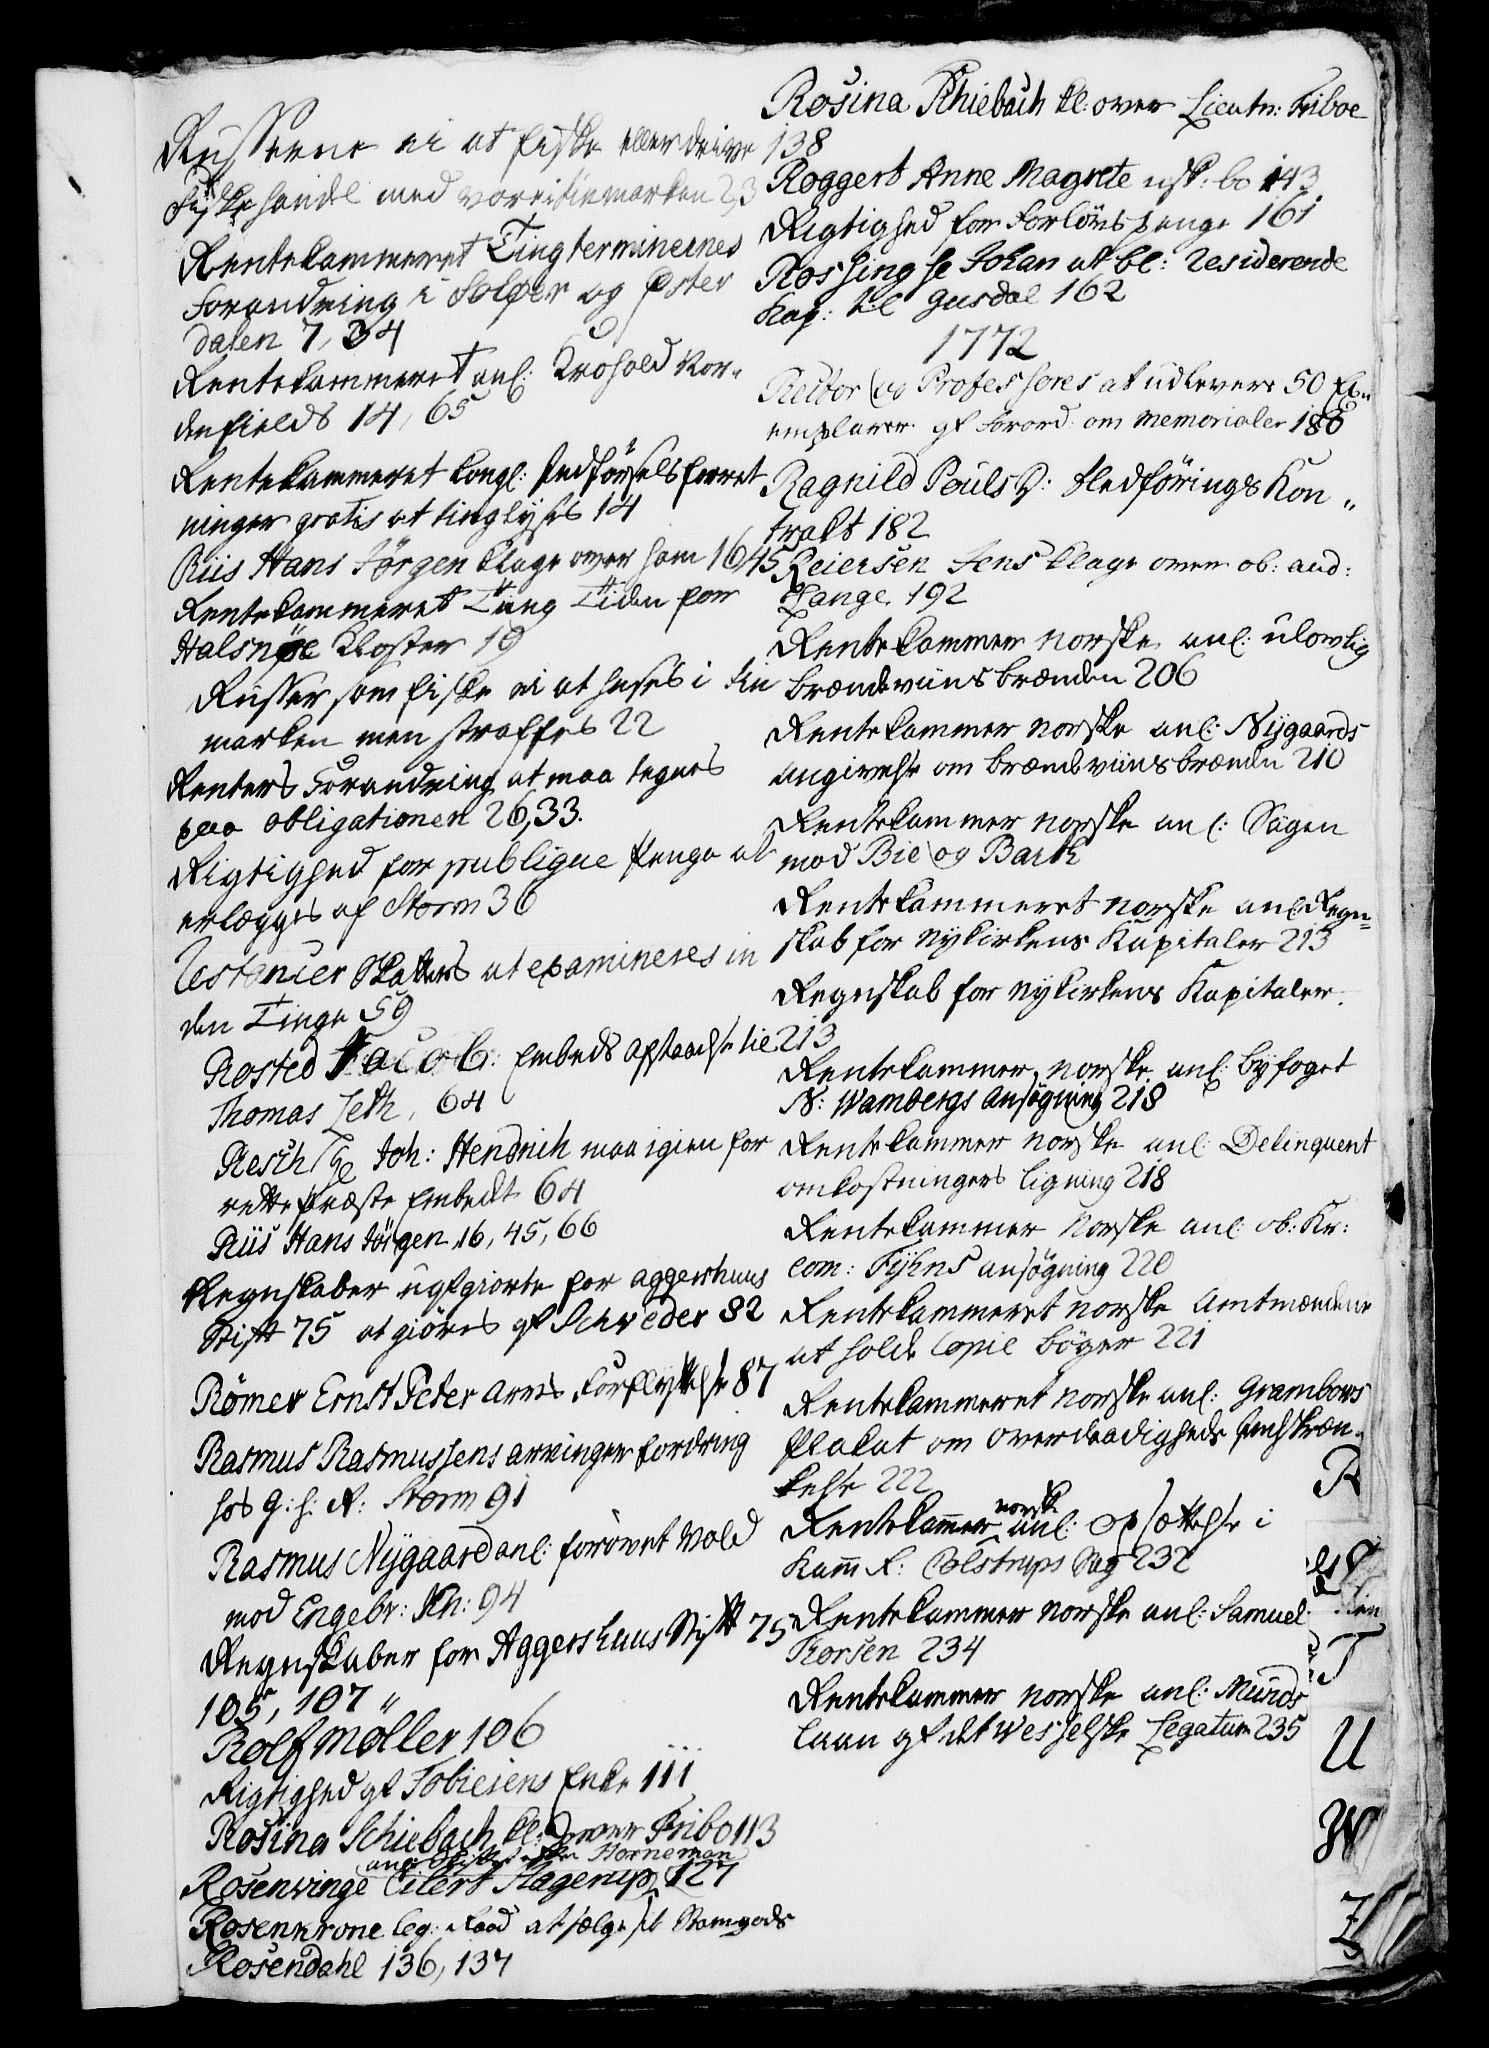 Russerne ei at fiske eller drive
fiskehandel med vor Finmarken 23
Rentekammeret Tingterminernes
forandring i Soløer og Øster
dalen 7, 34
Rentekammeret anl: Krohold Nor-
denfields 14, 65
Rentekammeret Kongl: Indførselsforret
ninger gratis at tinglyses 14
Riis Hans Jörgen klage over ham 16, 45
Rentekammeret Ting Tiden for
Halsnöe Kloster 19
Russer som fiske ei at huses i Fin
marken men straffes 22
Renters Forandring at maa tegnes
paa obligationen 26, 33.
Rigtighed for publique Penge at
erlægges af Storm 36
Restancier Skatters at examineres in
den Tinge 59
Rosted Jacob: Embeds afstaaelse til
Thomas Leth, 64
Resch Hr Joh: Hendrich maa igien for
rette Præste Embedet 64
Riis Hans Jörgen 16, 45, 66
Regnskaber uafgiorte for aggershuus
Stift 75 at giöres af Schrøder 82
Römer Ernst Peter arvs forflyttelse 87
Rasmus Rasmussens arvinger fordring
hos G: h: R: Storm 91
Rasmus Nÿgaard anl: forövet vold
mod Engebr: Kn: 94
Regnskaber for Aggershuus Stift 75
105, 107 "
Rolf Møller 106
Rigtighed af Tobiesens Enke 111
Rosina Schiebach kl: over Fribo 113
Rosenvinge Eilert Hagerup 127
Rosenkrone leg: Raad at sælge sit Stamgods
Rosendahl 136, 137
Rosina Schiebach kl: over Lieutn: Friboe
138
Roggert Anne Magrete usk: bo 143
Rigtighed for Forlövs penge 161
Rossing Hr Johan at bl: residerende
Kap: til Gusdal 162
1772
Rector og Professores at udlevere 50 Ex-
emplarer af Forord: om Memorialer 180
Ragnild Pouls D: fledförings Kon "
trakt 182
Reiersen Jens klage over ob: aud:
Lange 192
Rentekammer norske anl: ulovlig
brændeviinsbrænden 206
Rentekammer norske anl: Nÿgaards
angivelse om brændeviinsbrænden 210
Rentekammer norske anl: Sagen
mod Bie og Barth
Rentekammeret norske anl: Regn-
skab for Nykirkens Kapitaler 213
Regnskab for Nykirkens Kapitaler.
213
Rentekammer norske anl: byfoget
N: Wambergs Ansögning 218
Rentekammer norske anl: Delinquent
omkostningers ligning 218
Rentekammer norske anl: ob: Kr:
com: Fÿhns ansögning 220
Rentekammeret norske Amtmændene
at holde Copie böger 221
Rentekammeret norske anl: Grambows
Plakat om overdaadigheds Indskræn-
kelse 222
Rentekammer norske anl: opsættelse i
Kamm R: Colstrups Sag 232
Rentekammer norske anl: Samuel
Thorsen 234
Rentekammer norske anl: Munds
laan af det Wesselske Legatum 235
R
T
U
W
Z